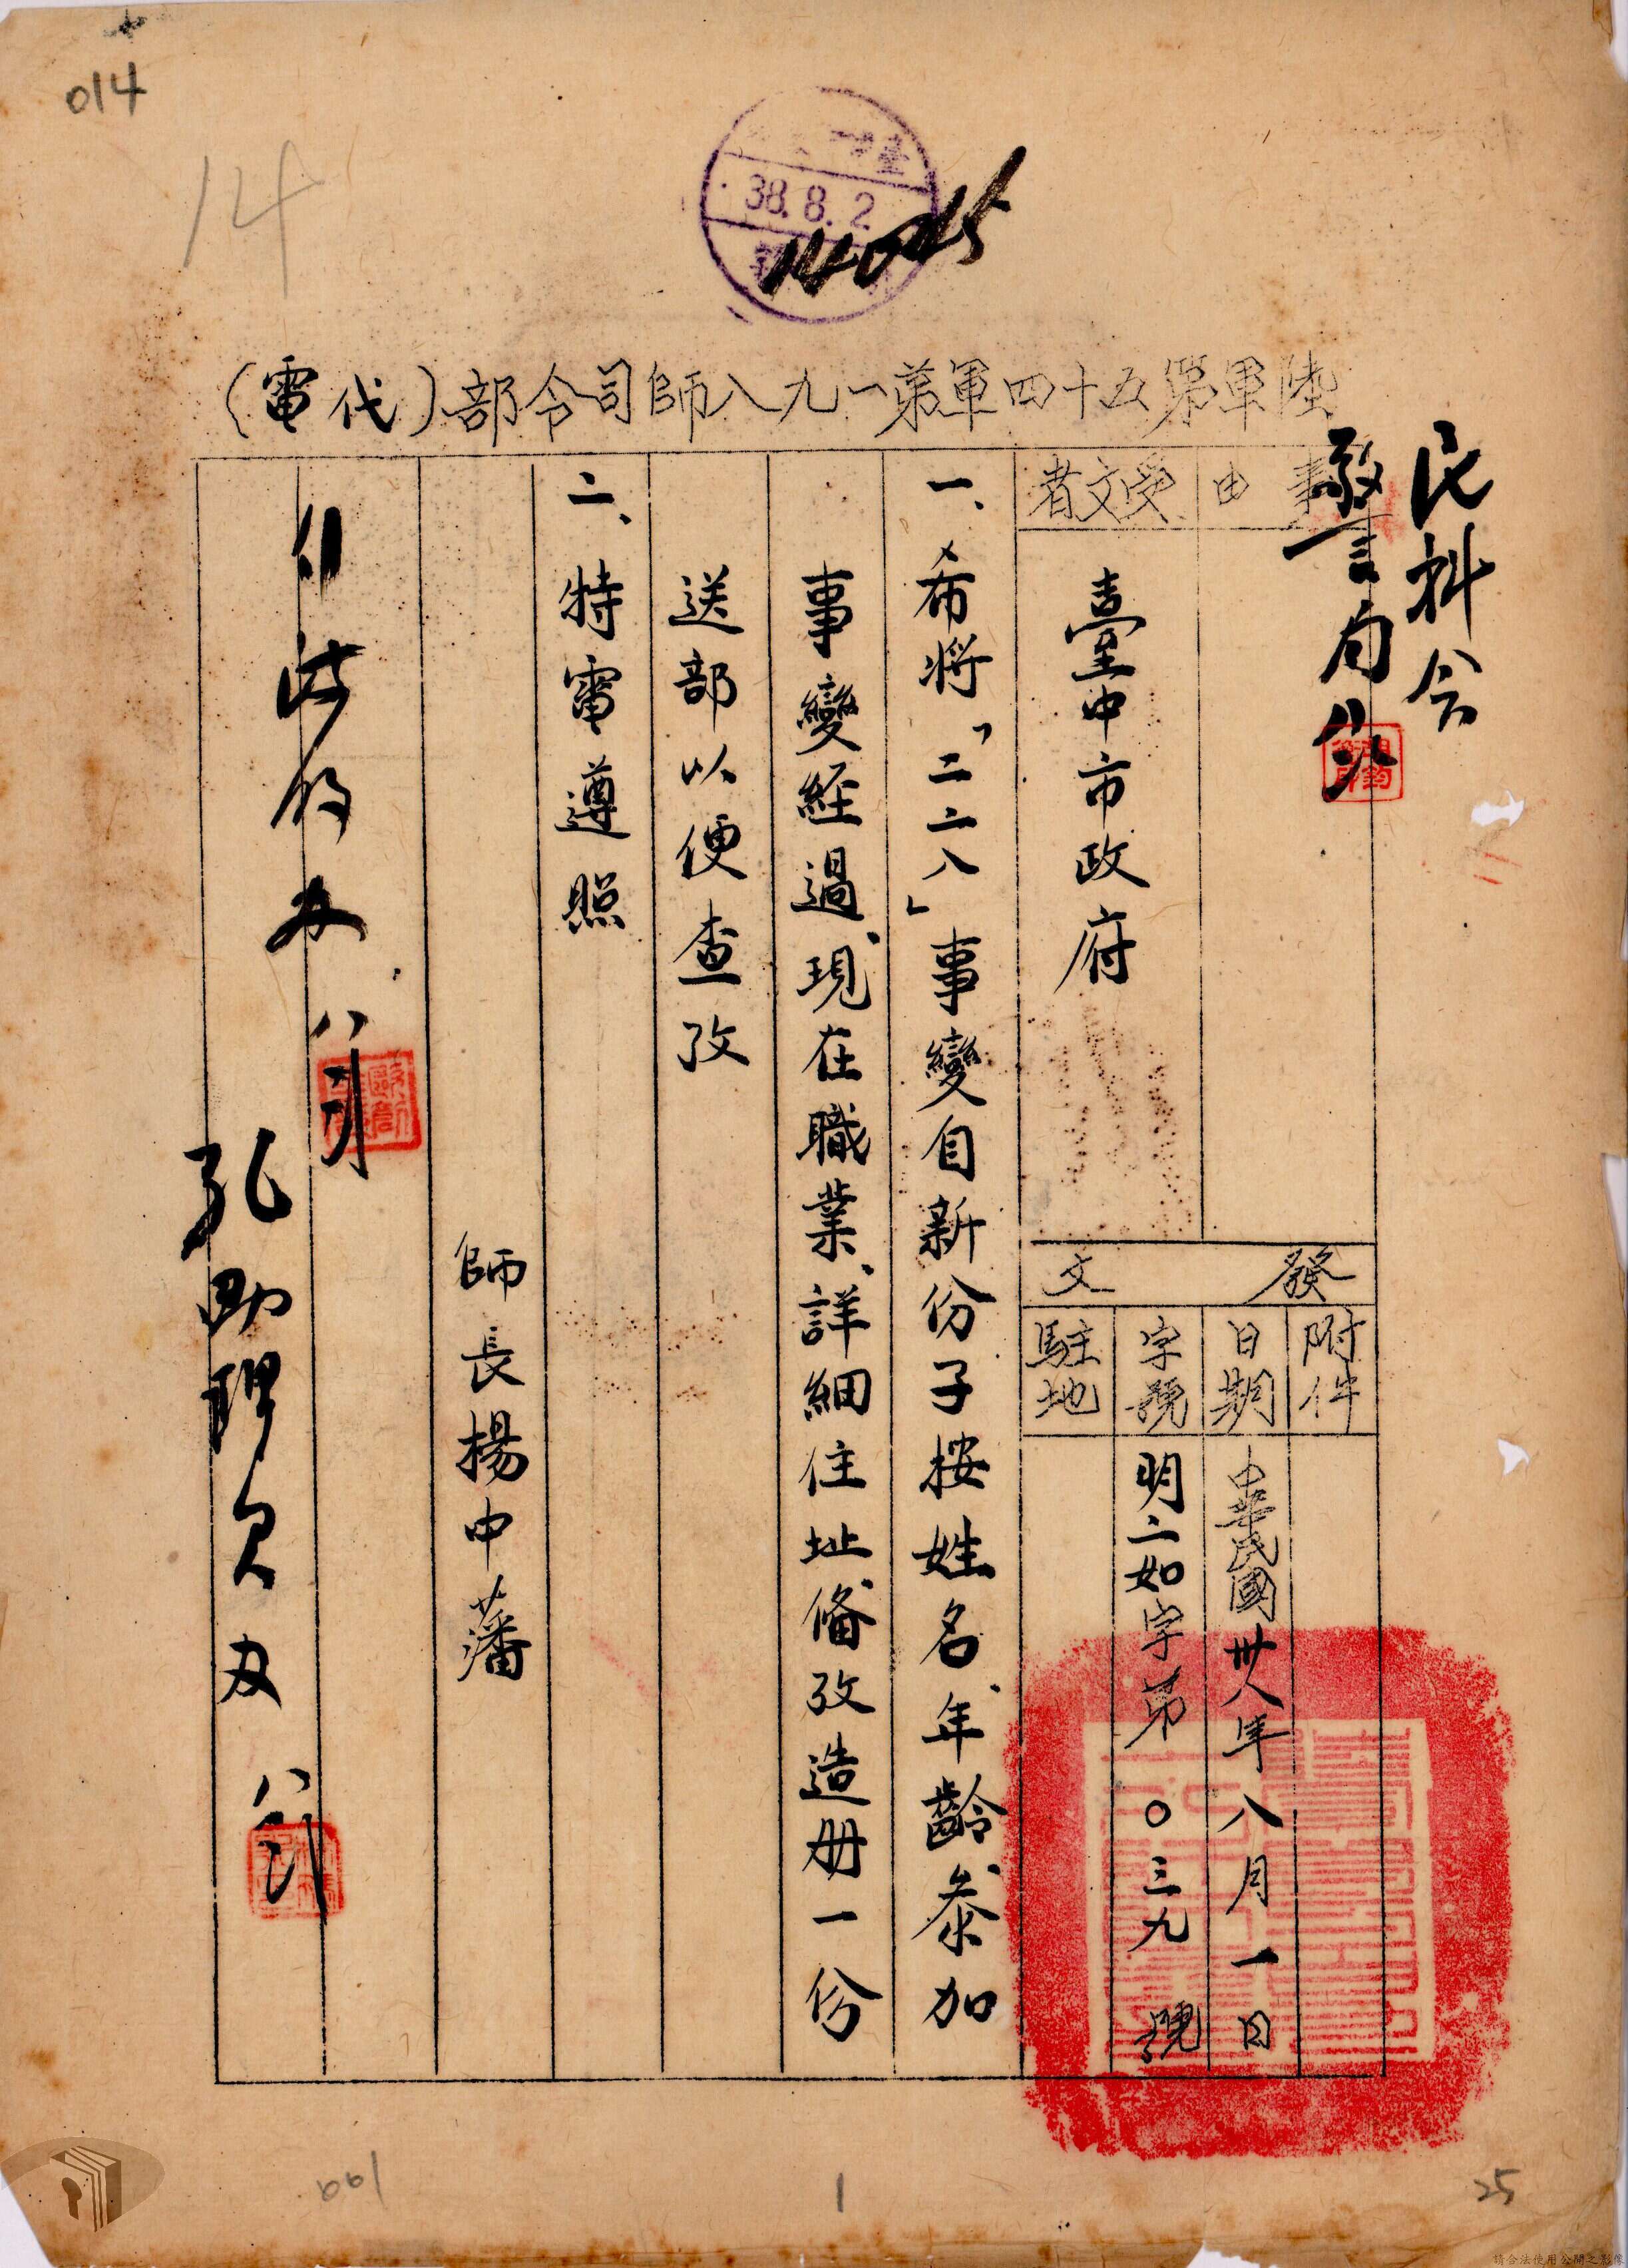 014
14
38.8.2
14045
陸軍第五十四軍第一九八師司令部(代電)
民科会
警局
事由
受文者
臺中市政府
發文
附件
日期
中華民國卅八年八月一日
字號
明二如字第〇三九號
駐地
一、希將「二二八」事變自新份子按姓名、年齡、叅加
事變經過、現在職業、詳細住址、俻攷造册一份
送部以便查攷
二、特電遵照
師長楊中藩
孔助理員
1
25
請合法使用公開之影像